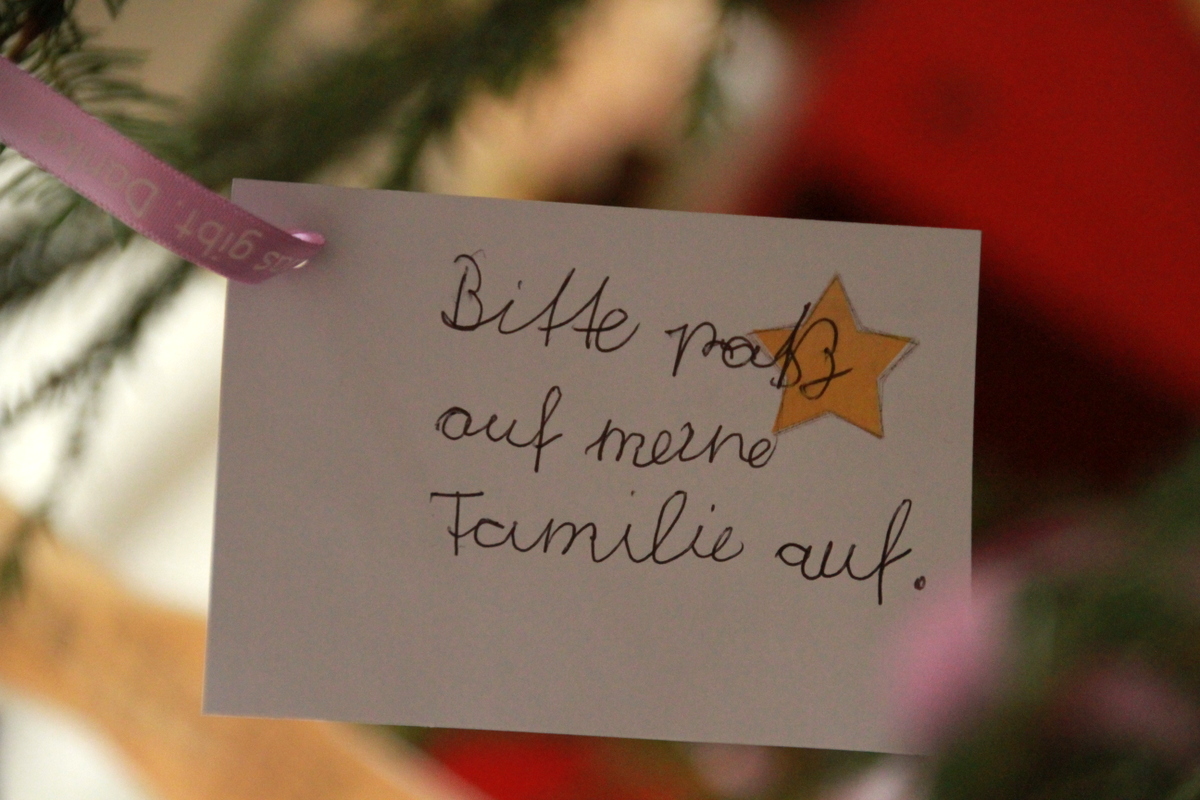 as gibt. Danke
Bitte paß
auf meine
Familie auf.